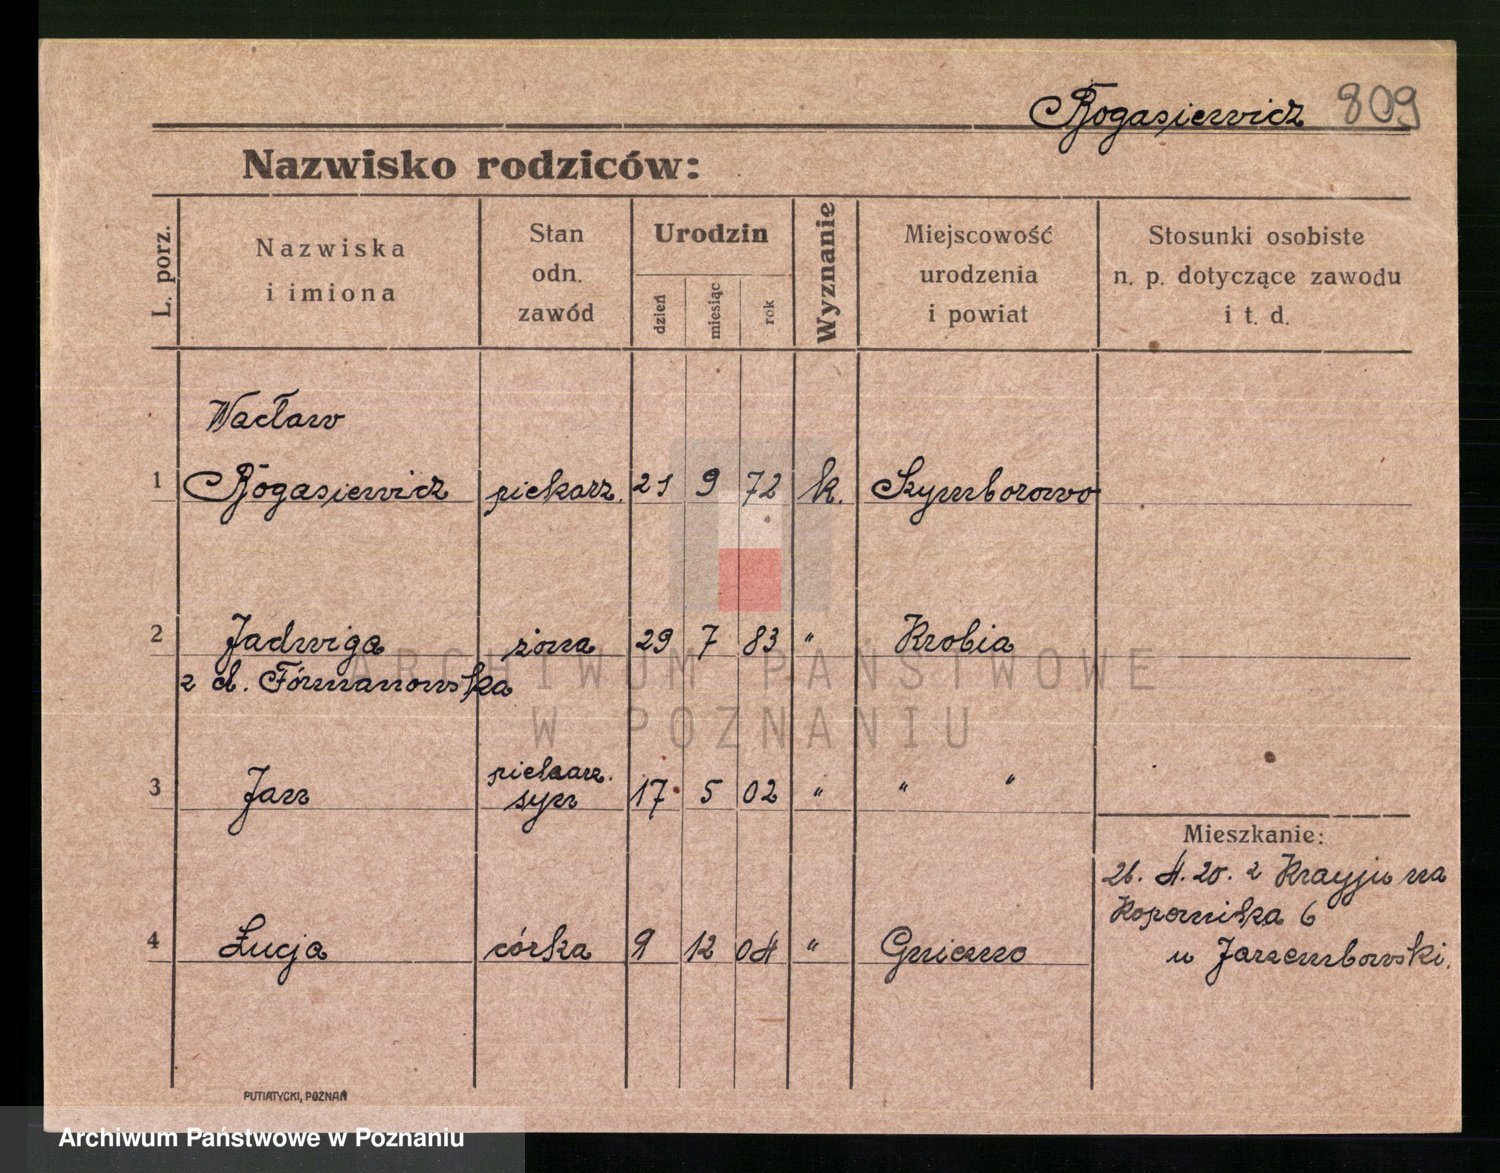 Bogasiewicz 809
Nazwisko rodziców:
L. porz.
Nazwiska
i imiona
Stan
odn.
zawód
Urodzin
dzień
miesiąc
rok
Wyznanie
Miejscowość
urodzenia
i powiat
Stosunki osobiste
n. p. dotyczące zawodu
i t. d.
Wacław
1 Bogasiewicz piekarz. 21 9 72 k. Szymborowo
2 Jadwiga żona 29 7 83 " Krobia
z d. Fórmanowska
piekarz.
3 Jan syn 17 5 02 " " "
Mieszkanie:
26. 4. 20. z na
Kopernika 6
u Jarzembowski.
4 Łucja córka 9 12 04 " Gniezno
PUTIATYCKI, POZNAŃ
ARCHIWUM PAŃSTWOWE
W POZNANIU
Archiwum Państwowe w Poznaniu